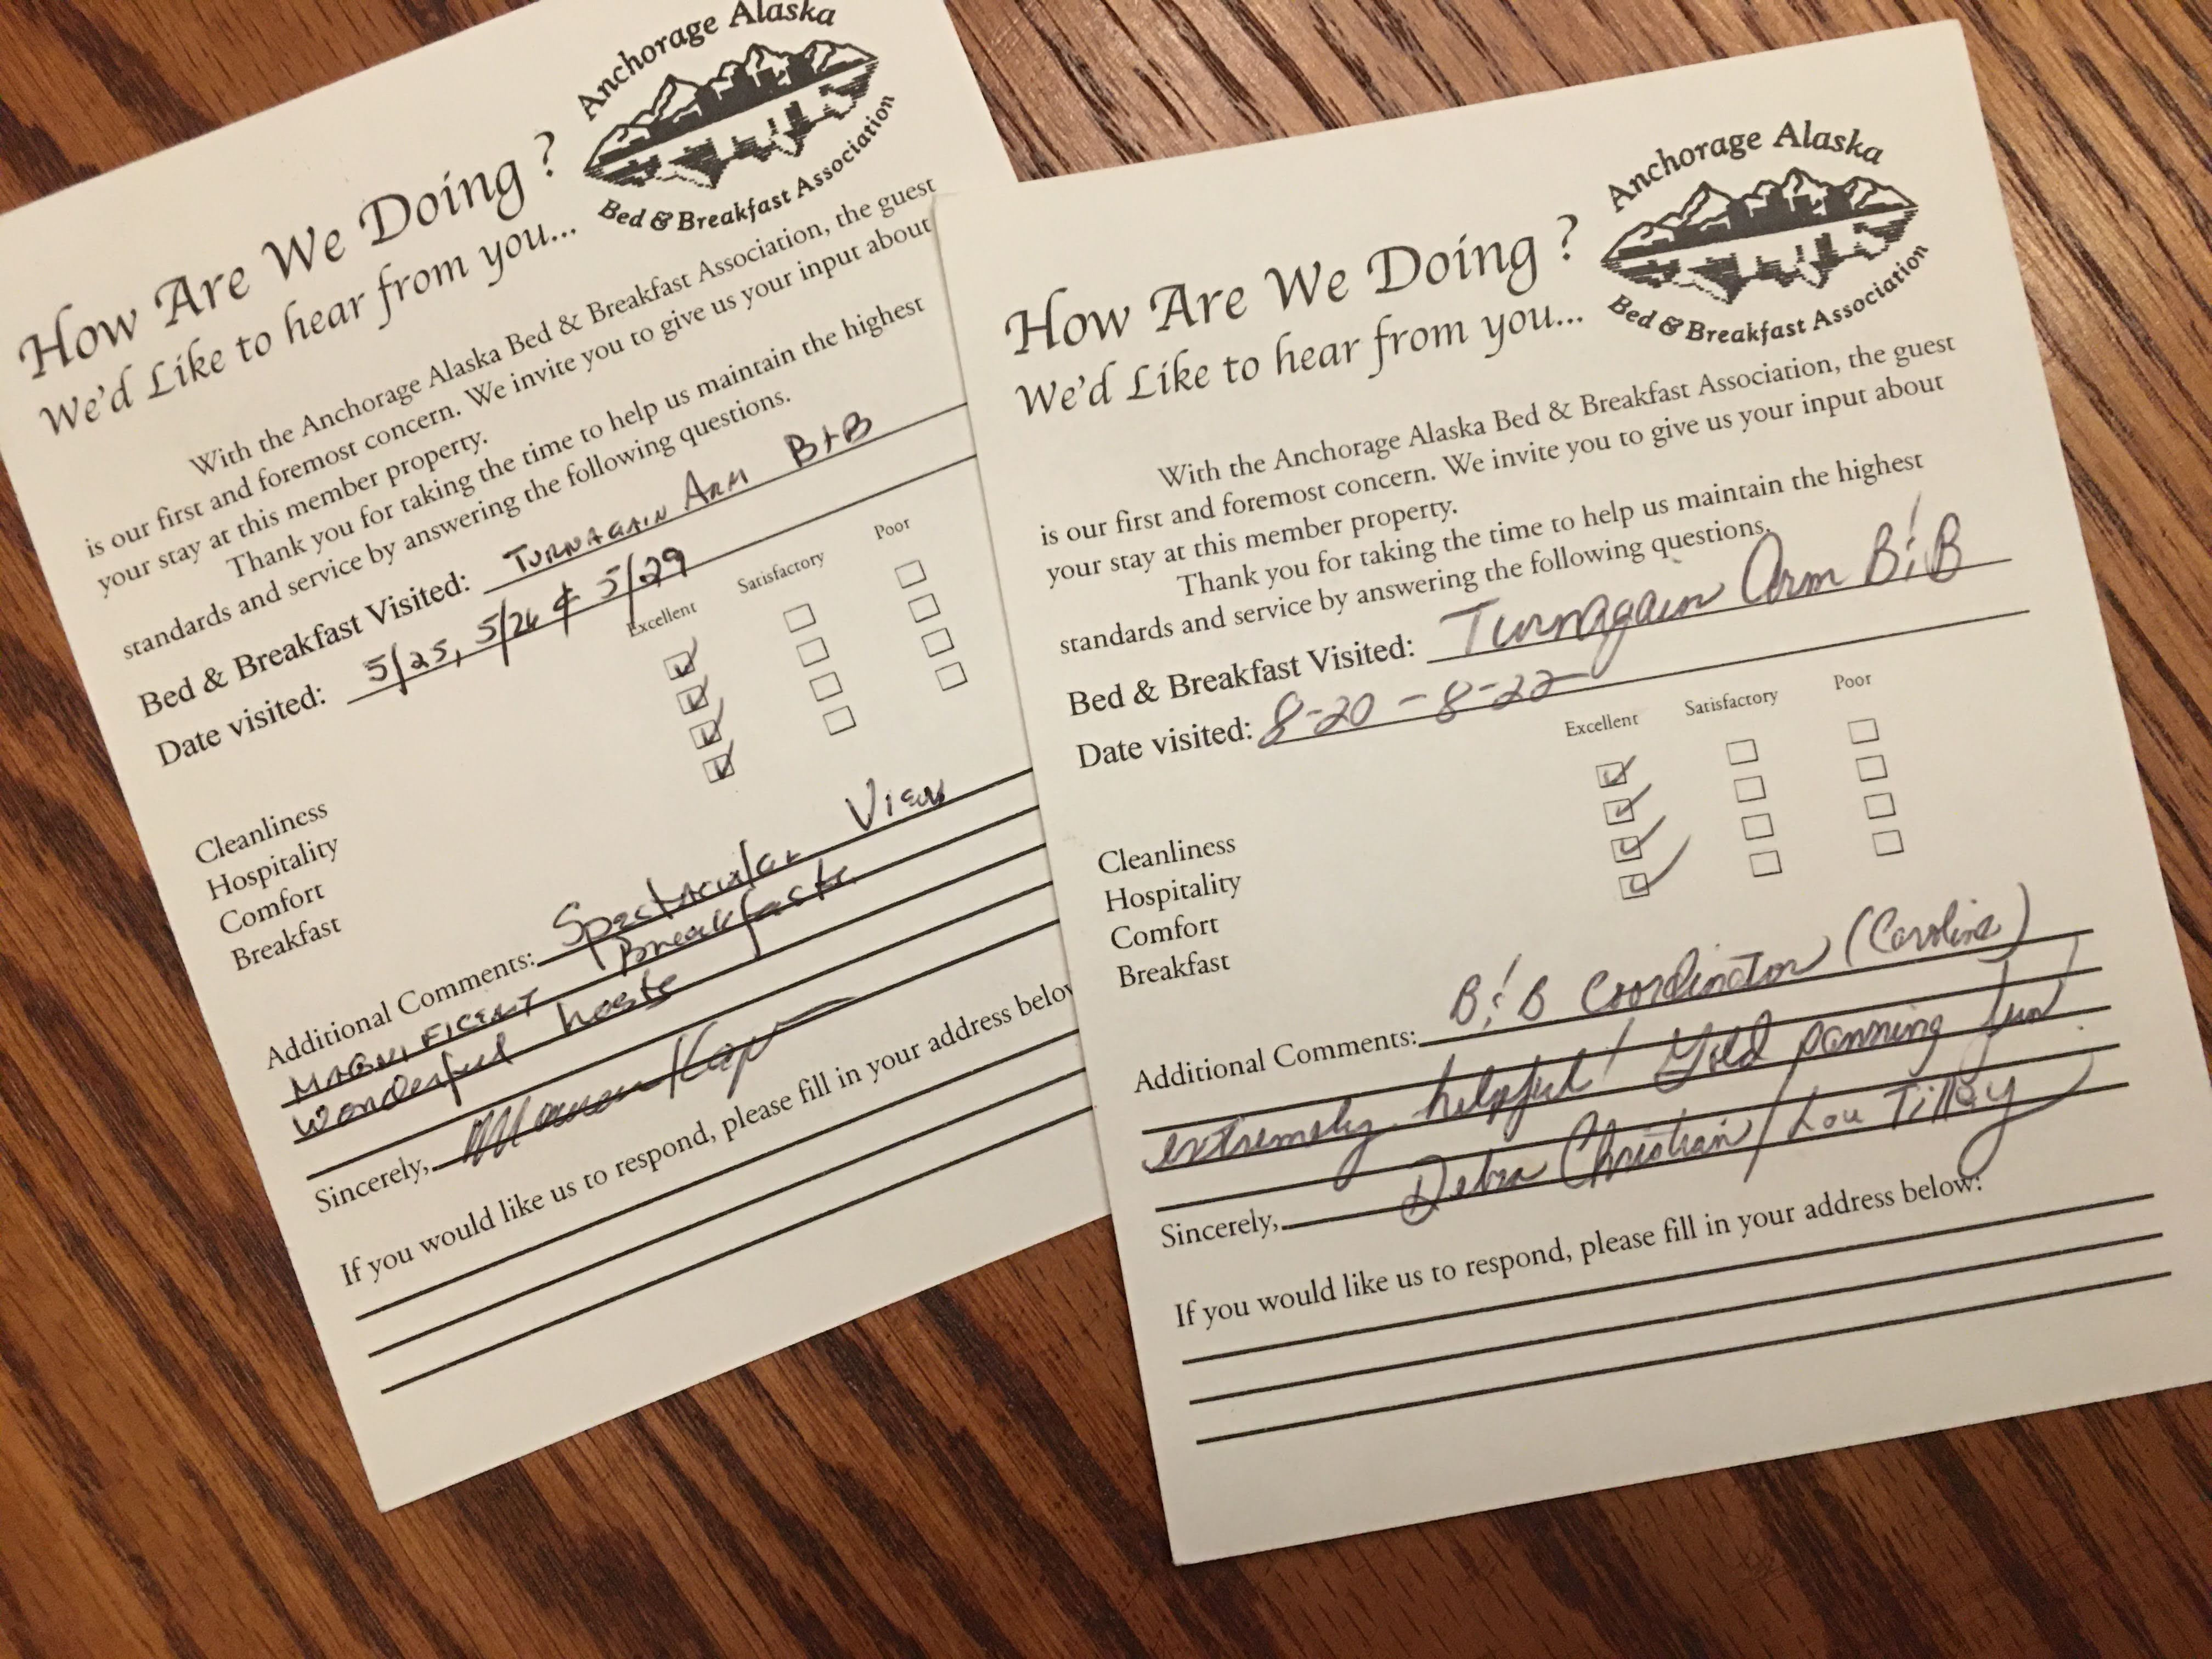 Anchorage Alaska
Bed & Breakfast Association
How Are We Doing ?
We'd Like to hear from you...
With the Anchorage Alaska Bed & Breakfast Association, the guest
is our first and foremost concern. We invite you to give us your input about
your stay at this member property.
Thank you for taking the time to help us maintain the highest
standards and service by answering the following questions.
Bed & Breakfast Visited: TURNAGAIN ARM B+B
Date visited: 5/25, 5/26 & 5/29
Excellent Satisfactory Poor
Cleanliness
Hospitality
Comfort
Breakfast
Additional Comments: Spectacular View
MAGNIFICENT Breakfasts
Wonderful hosts
Sincerely,
If you would like us to respond, please fill in your address below
Anchorage Alaska
Bed & Breakfast Association
How Are We Doing ?
We'd Like to hear from you...
With the Anchorage Alaska Bed & Breakfast Association, the guest
is our first and foremost concern. We invite you to give us your input about
your stay at this member property.
Thank you for taking the time to help us maintain the highest
standards and service by answering the following questions.
Bed & Breakfast Visited: Turnagain Arm B&B
Date visited: 8-20 - 8-22
Excellent Satisfactory Poor
Cleanliness
Hospitality
Comfort
Breakfast
Additional Comments: B&B Coordinator (Caroline)
extremely helpful! Gold panning fun!
Sincerely, Debra Christian/Lou Tilley
If you would like us to respond, please fill in your address below: